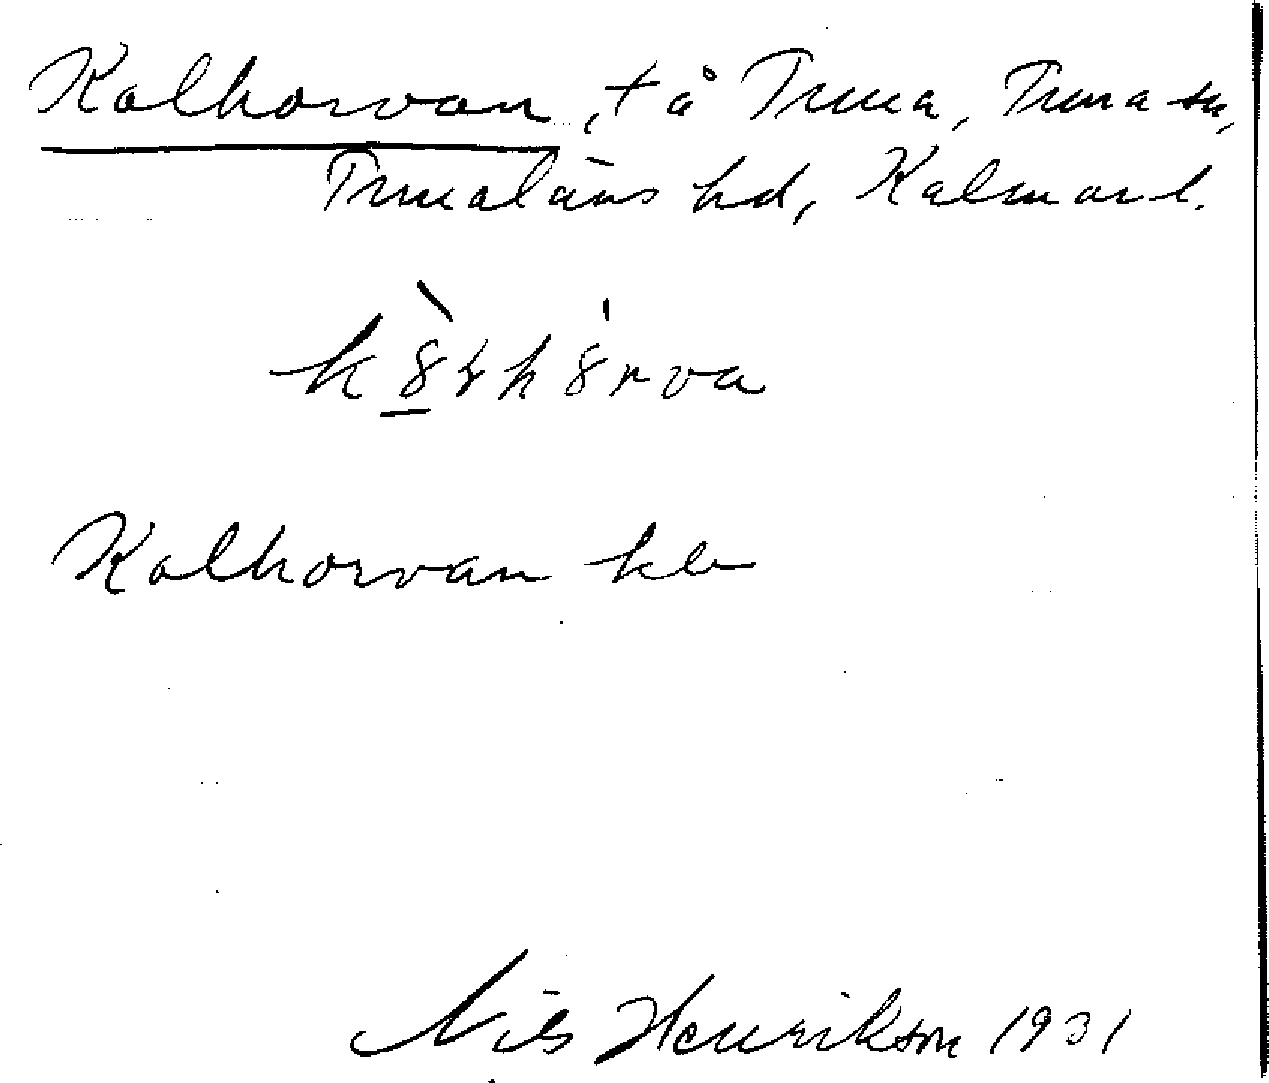 Kolhorvan, t å Tuna, Tuna sn,
Tunaläns hd, Kalmar l.
Kolhorvan
Nils Henrikson 1931